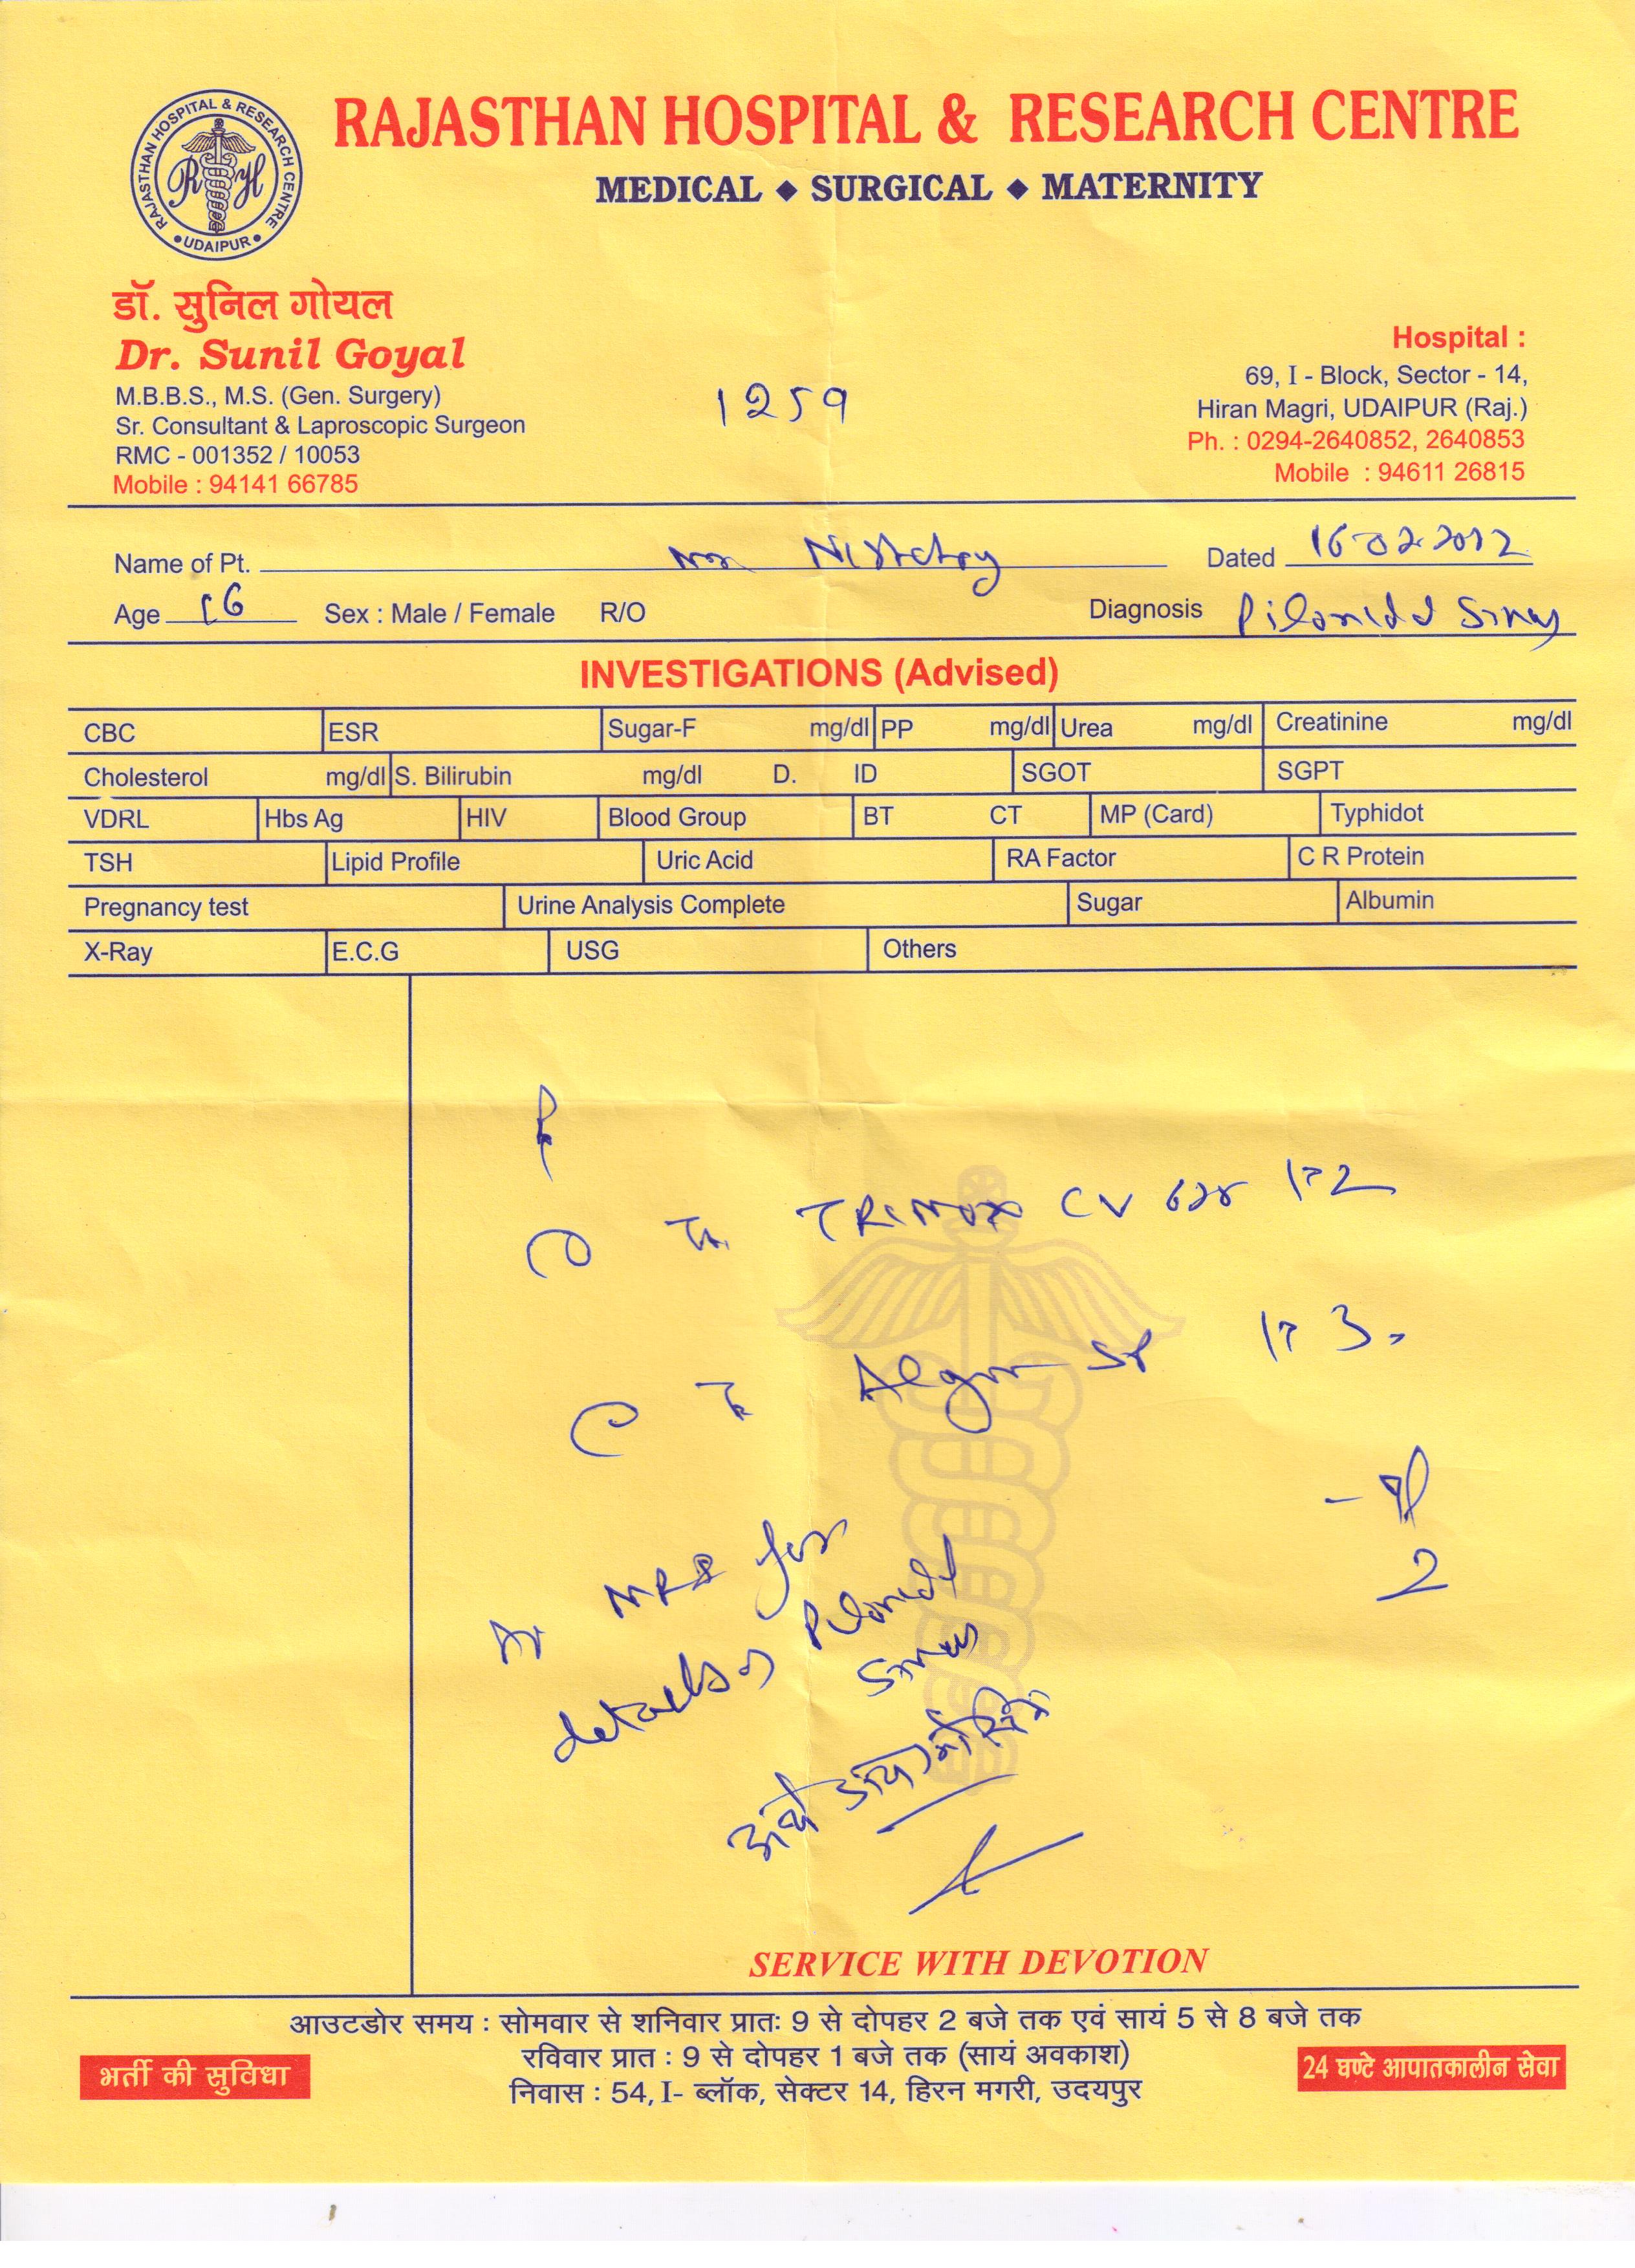 RAJASTHAN HOSPITAL & RESEARCH CENTRE
MEDICAL ◆ SURGICAL ◆ MATERNITY
RAJASTHAN HOSPITAL & RESEARCH CENTRE
• UDAIPUR •
RH
डॉ. सुनिल गोयल
Dr. Sunil Goyal
M.B.B.S., M.S. (Gen. Surgery)
Sr. Consultant & Laproscopic Surgeon
RMC - 001352 / 10053
Mobile : 94141 66785
1259
Hospital :
69, I - Block, Sector - 14,
Hiran Magri, UDAIPUR (Raj.)
Ph. : 0294-2640852, 2640853
Mobile : 94611 26815
Name of Pt. Dated 16-02-2012
Age 16 Sex : Male / Female R/O Diagnosis Pilonidal Sinus
INVESTIGATIONS (Advised)
CBC ESR Sugar-F mg/dl PP mg/dl Urea mg/dl Creatinine mg/dl
Cholesterol mg/dl S. Bilirubin mg/dl D. ID SGOT SGPT
VDRL Hbs Ag HIV Blood Group BT CT MP (Card) Typhidot
TSH Lipid Profile Uric Acid RA Factor C R Protein
Pregnancy test Urine Analysis Complete Sugar Albumin
X-Ray E.C.G USG Others
TRIMOX CV 625 1-2
SP 3
for
details Pilonidal
Sinus
2
SERVICE WITH DEVOTION
आउटडोर समय : सोमवार से शनिवार प्रातः 9 से दोपहर 2 बजे तक एवं सायं 5 से 8 बजे तक
रविवार प्रात : 9 से दोपहर 1 बजे तक (सायं अवकाश)
निवास : 54, I- ब्लॉक, सेक्टर 14, हिरन मगरी, उदयपुर
भर्ती की सुविधा
24 घण्टे आपातकालीन सेवा